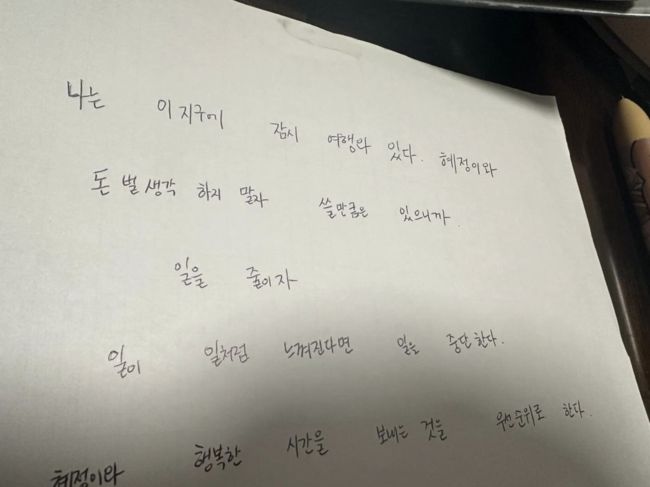 나는 이 지구에 잠시 여행와 있다. 혜정이와
돈 벌 생각 하지 말자 쓸만큼은 있으니까.
일을 줄이자
일이 일처럼 느껴진다면 일을 중단한다.
혜정이와 행복한 시간을 보내는 것을 우선순위로 한다.